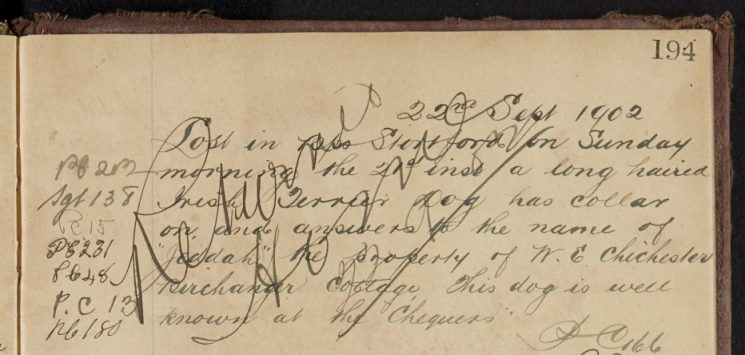 194
22nd Sept 1902
Lost in Bps Stortford on Sunday
morning the 21st inst a long haired
Irish Terrier dog has collar
on and answers to the name of
"Jeddah" the property of W. E Chichester
Birchanger Cottage, This dog is well
known at the "Chequers"
P C 166
Sgt 138
PC 15
PC 231
PC 48
P. C 13